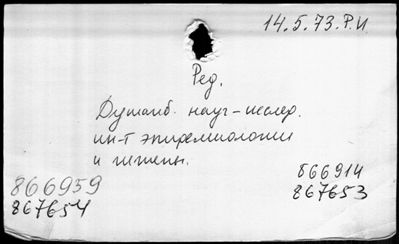 14.5.73.Р.И
Ред.
Душанб. науч-исслед.
ин-т эпидемиологии
и гигиены.
866959
867654
866914
867653